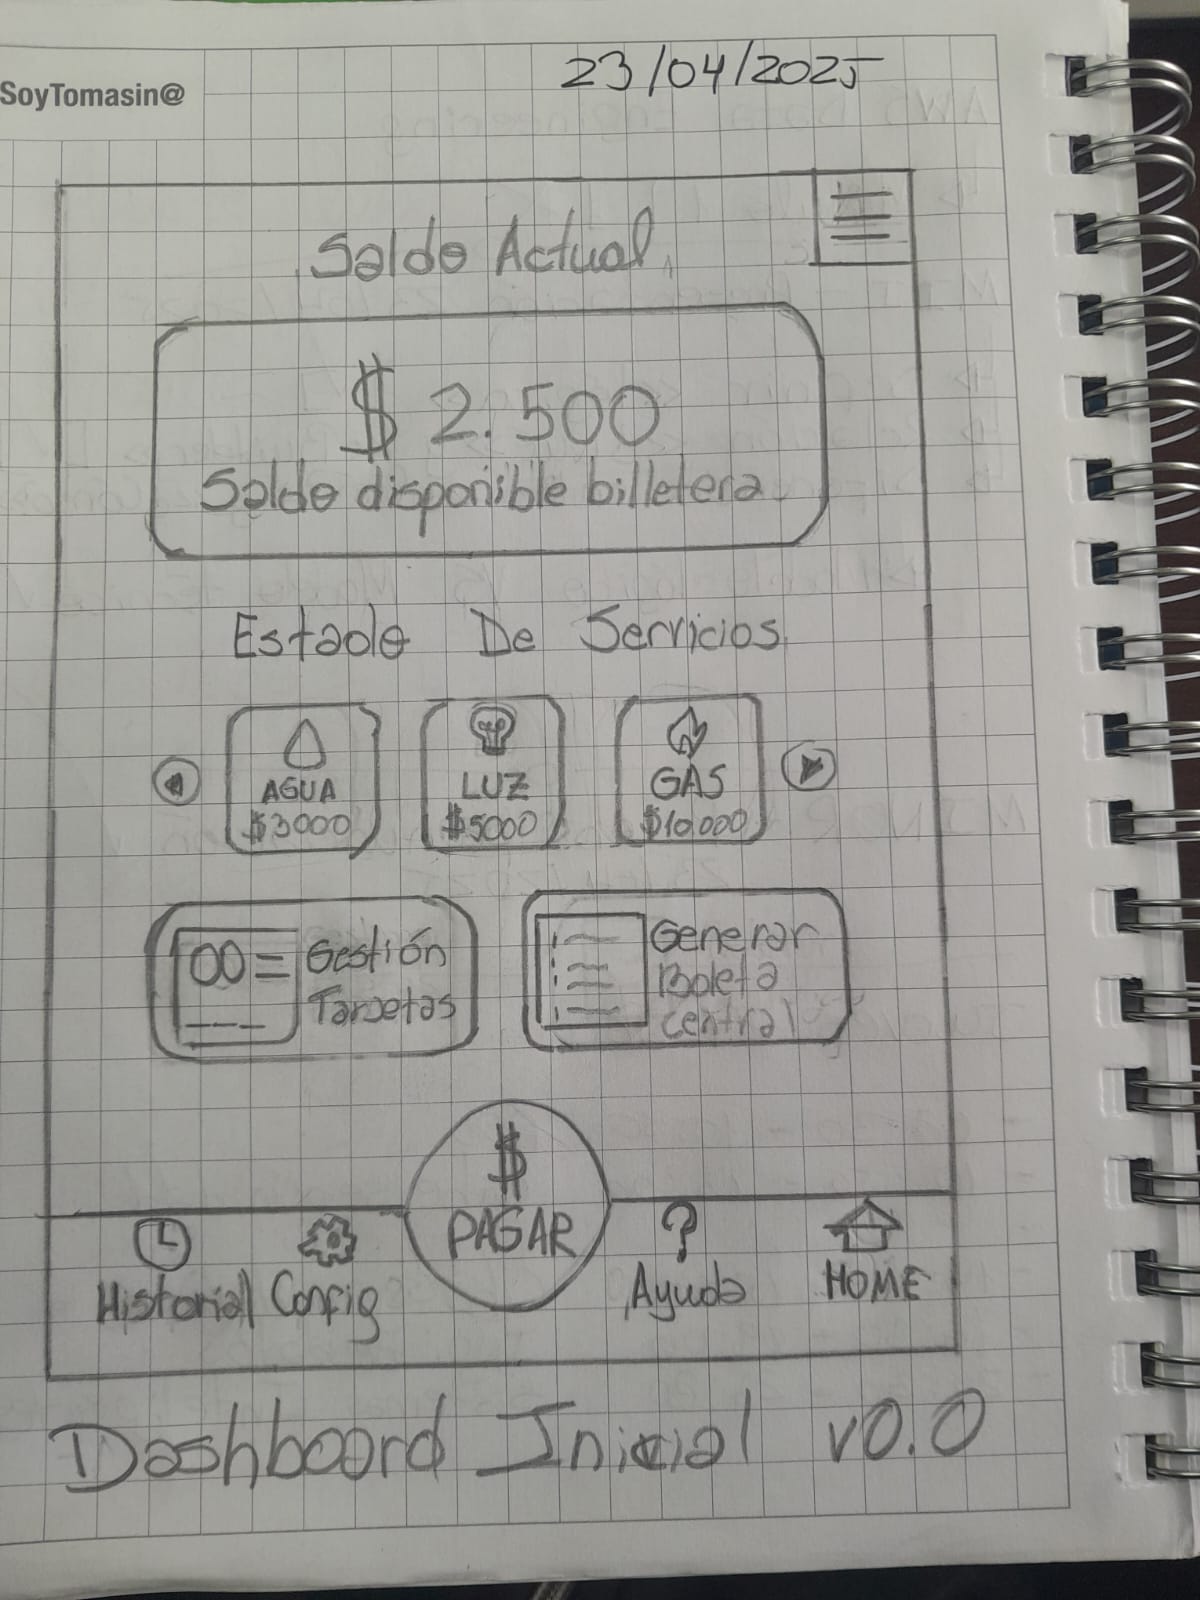 SoyTomasin@
23/04/2025
Saldo Actual
$ 2.500
Saldo disponible billetera
Estado De Servicios
AGUA
$3000
LUZ
$5000
GAS
$10.000
Gestión
Tarjetas
Generar
Boleta
central
$
PAGAR
Historial
Config
?
Ayuda
HOME
Dashboard Inicial v0.0